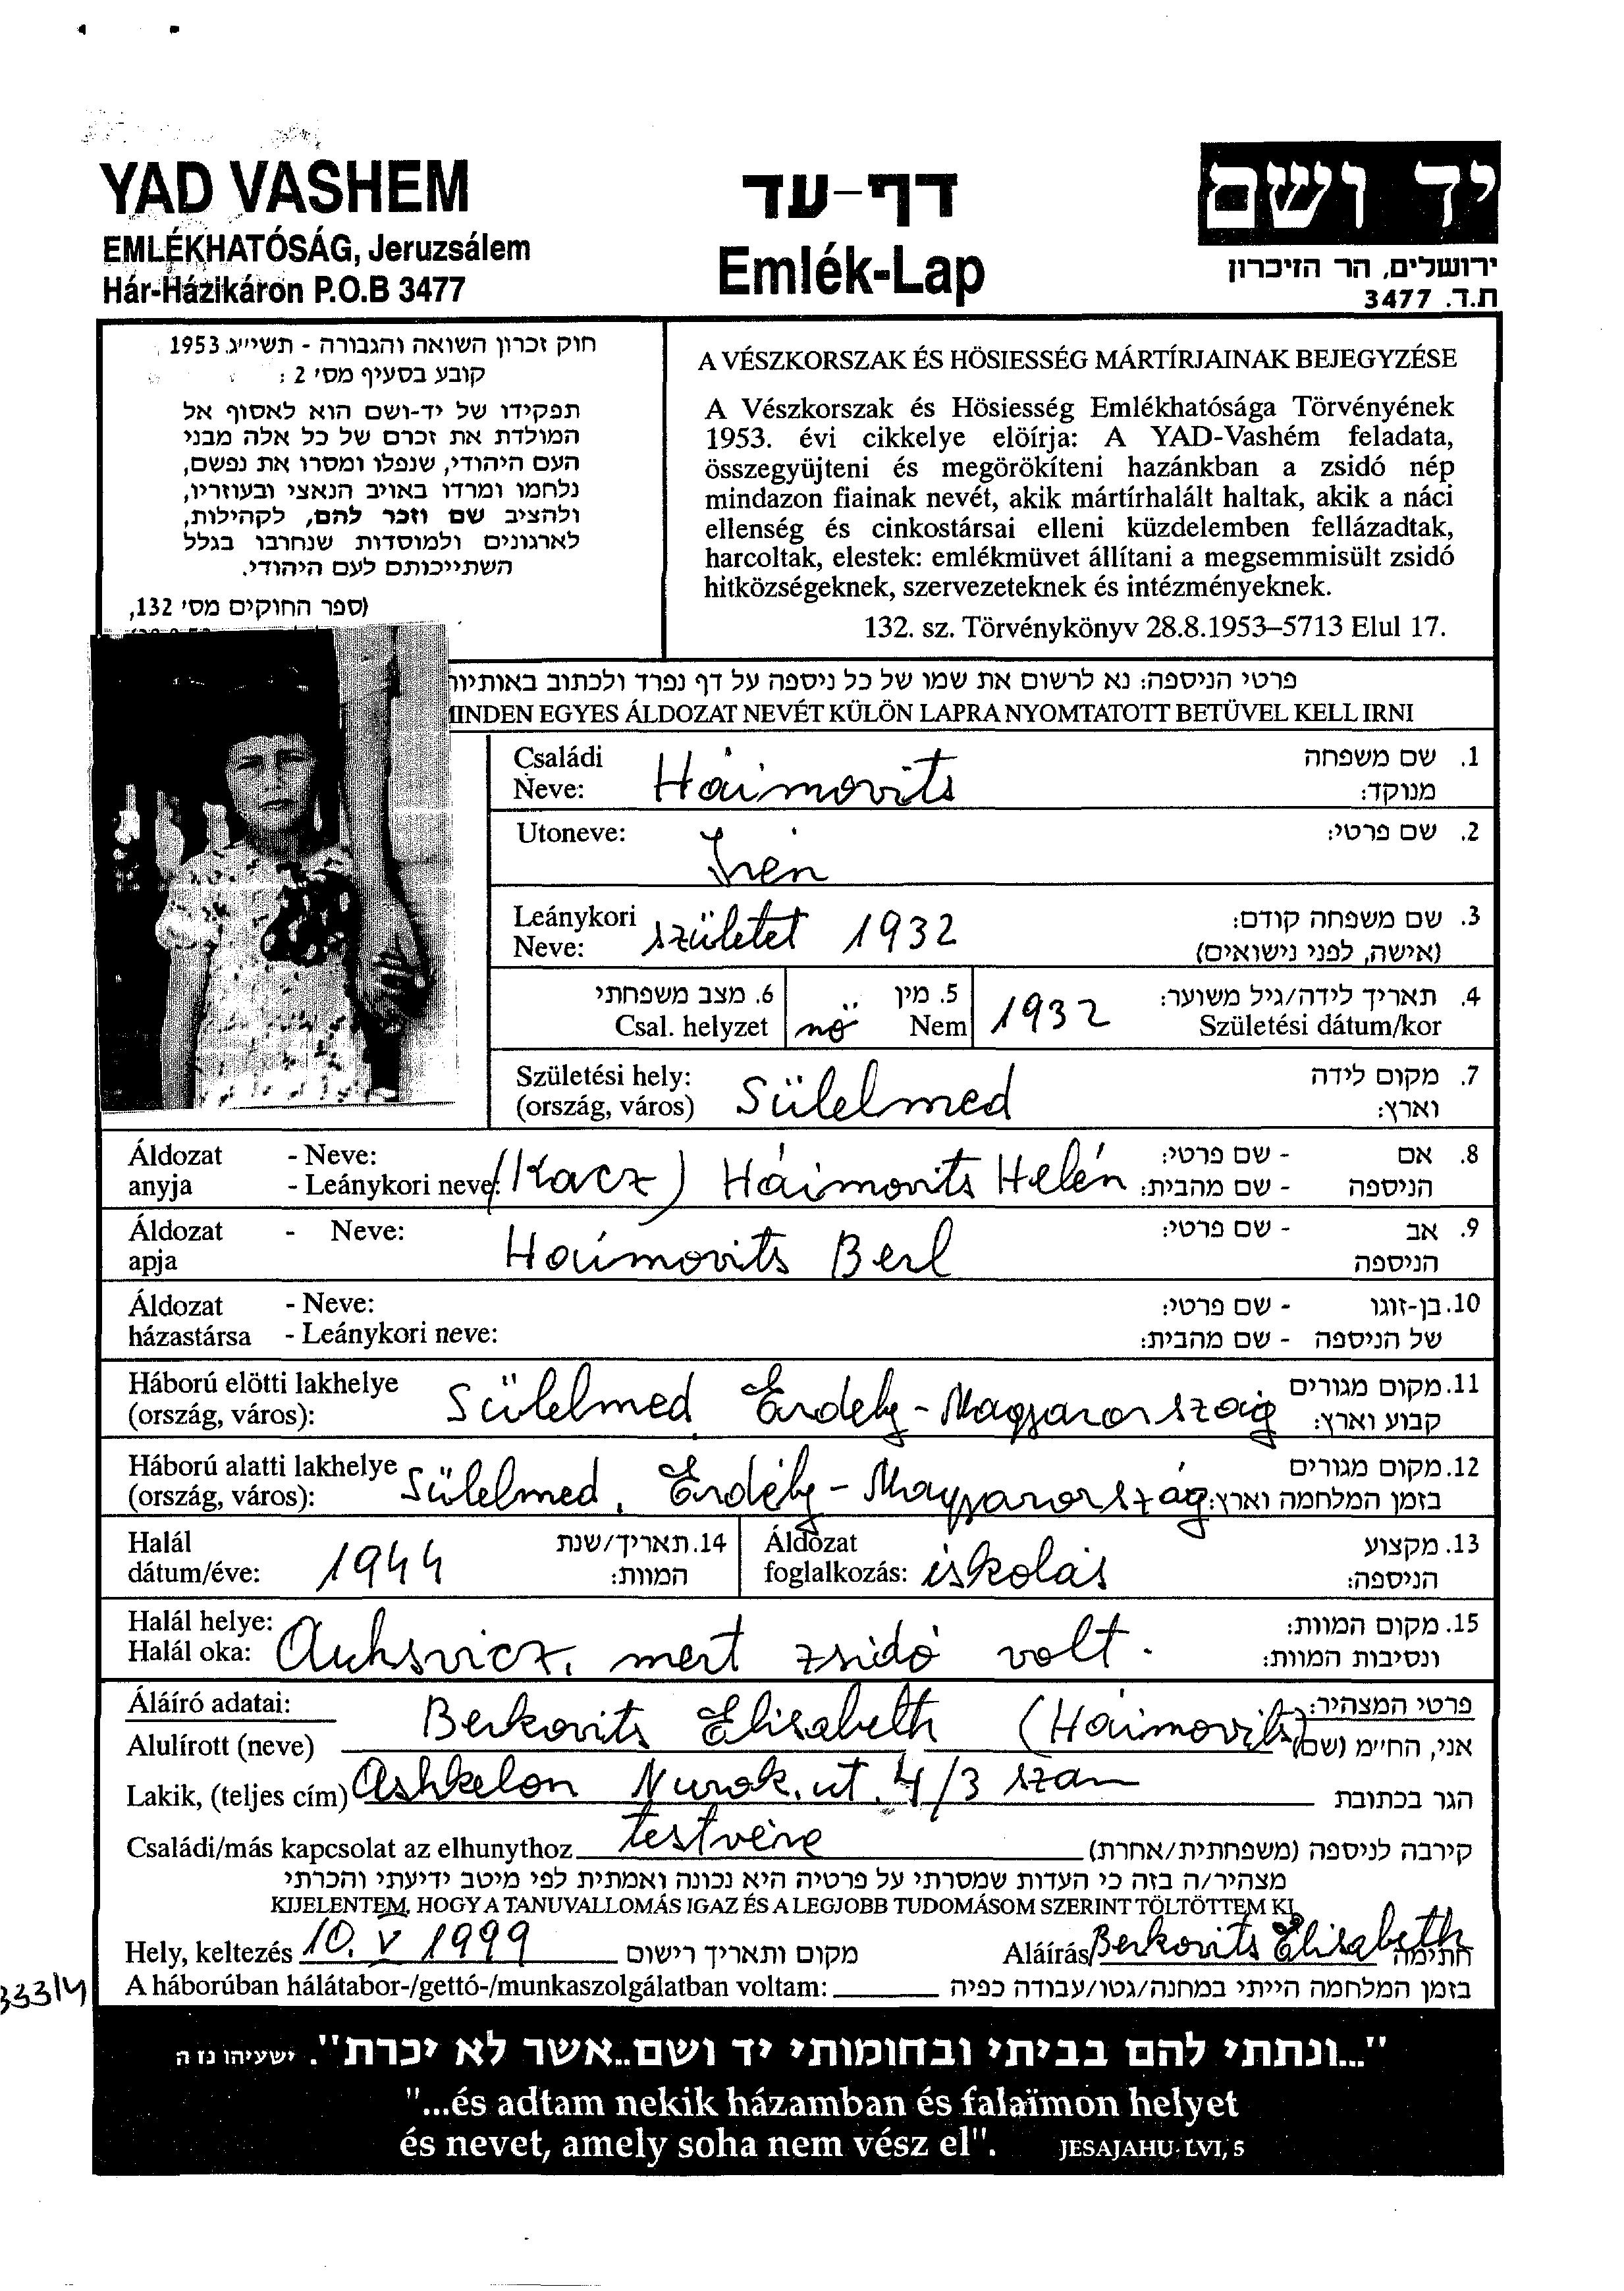 YAD VASHEM
EMLÉKHATÓSÁG, Jeruzsálem
Hár-Házikáron P.O.B 3477
דף-עד
Emlék-Lap
יד ושם
ירושלים, הר הזיכרון
ת.ד. 3477
חוק זכרון השואה והגבורה - תשי״ג 1953
קובע בסעיף מס' 2 :
תפקידו של יד-ושם הוא לאסוף אל
המולדת את זכרם של כל אלה מבני
העם היהודי, שנפלו ומסרו את נפשם,
נלחמו ומרדו באויב הנאצי ובעוזריו,
ולהציב שם וזכר להם, לקהילות,
לארגונים ולמוסדות שנחרבו בגלל
השתייכותם לעם היהודי.
(ספר החוקים מס' 132,
A VÉSZKORSZAK ÉS HÖSIESSÉG MÁRTÍRJAINAK BEJEGYZÉSE
A Vészkorszak és Hösiesség Emlékhatósága Törvényének
1953. évi cikkelye elöírja: A YAD-Vashém feladata,
összegyüjteni és megörökíteni hazánkban a zsidó nép
mindazon fiainak nevét, akik mártírhalált haltak, akik a náci
ellenség és cinkostársai elleni küzdelemben fellázadtak,
harcoltak, elestek: emlékmüvet állítani a megsemmisült zsidó
hitközségeknek, szervezeteknek és intézményeknek.
132. sz. Törvénykönyv 28.8.1953–5713 Elul 17.
פרטי הניספה: נא לרשום את שמו של כל ניספה על דף נפרד ולכתוב באותיות
MINDEN EGYES ÁLDOZAT NEVÉT KÜLÖN LAPRA NYOMTATOTT BETÜVEL KELL IRNI
Családi Háimovits 1. שם משפחה
Neve: מנוקד:
Utoneve: Irén 2. שם פרטי:
Leánykori születet 1932 3. שם משפחה קודם:
Neve: (אישה, לפני נישואים)
6. מצב משפחתי 5. מין 4. תאריך לידה/גיל משוער:
Csal. helyzet nő Nem 1932 Születési dátum/kor
Születési hely: Sülelmed 7. מקום לידה
(ország, város) וארץ:
Áldozat - Neve: 8. אם - שם פרטי:
anyja - Leánykori neve: (Kacz) Háimovits Helén הניספה - שם מהבית:
Áldozat - Neve: Háimovits Berl 9. אב - שם פרטי:
apja הניספה
Áldozat - Neve: 10. בן-זוגו - שם פרטי:
házastársa - Leánykori neve: של הניספה - שם מהבית:
Háború elötti lakhelye Sülelmed Erdely - Magyarország 11. מקום מגורים
(ország, város): קבוע וארץ:
Háború alatti lakhelye Sülelmed, Erdély - Magyarország 12. מקום מגורים
(ország, város): בזמן המלחמה וארץ:
Halál 14. תאריך/שנת Áldozat 13. מקצוע
dátum/éve: 1944 המוות: foglalkozás: iskolás הניספה:
Halál helye: 15. מקום המוות:
Halál oka: Auhsvicz, mert zsidó volt. ונסיבות המוות:
Áláíró adatai: Berkovits Elisabeth (Háimovits) פרטי המצהיר:
Alulírott (neve) אני, החי״מ (שם)
Lakik, (teljes cím) Ashkelon Nurok. ut. 4/3 szam הגר בכתובת
Családi/más kapcsolat az elhunythoz testvére קירבה לניספה (משפחתית/אחרת)
מצהיר/ה בזה כי העדות שמסרתי על פרטיה היא נכונה ואמתית לפי מיטב ידיעתי והכרתי
KIJELENTEM, HOGY A TANUVALLOMÁS IGAZ ÉS A LEGJOBB TUDOMÁSOM SZERINT TÖLTÖTTEM KI
Hely, keltezés 10. V 1999 מקום ותאריך רישום Aláírás Berkovits Elisabeth חתימה
A háborúban hálátabor-/gettó-/munkaszolgálatban voltam: בזמן המלחמה הייתי במחנה/גטו/עבודה כפיה
333/4
"...ונתתי להם בביתי ובחומותי יד ושם..אשר לא יכרת". ישעיהו נו ה
"...és adtam nekik házamban és falaïmon helyet
és nevet, amely soha nem vész el". JESAJAHU: LVI, 5